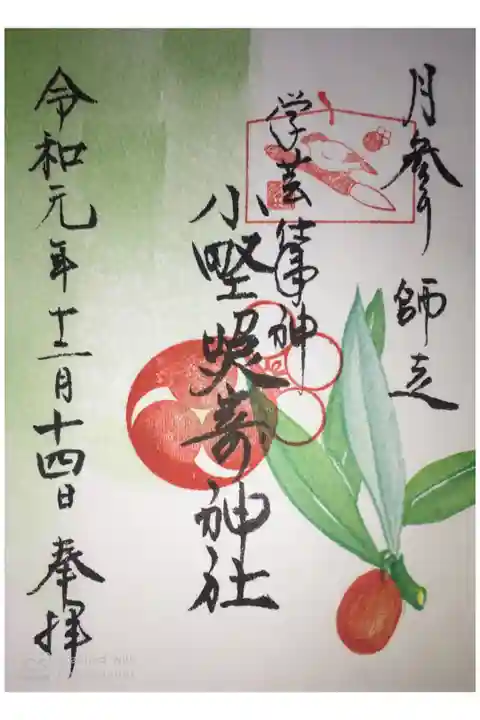 月参 師走
学芸 神
小野照嵜神社
令和元年十二月十四日 奉拝
CS